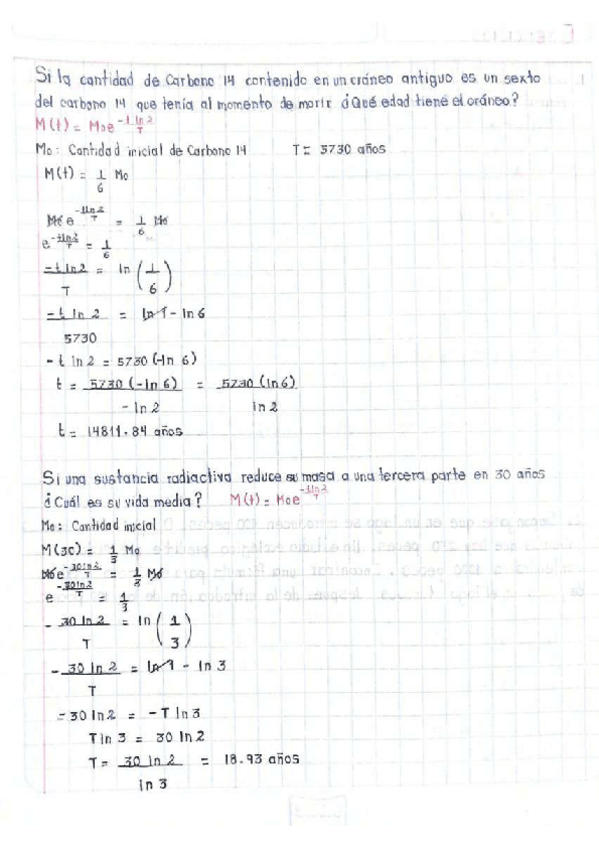 Si la cantidad de Carbono 14 contenido en un cráneo antiguo es un sexto
del carbono 14 que tenía al momento de morir ¿Qué edad tiene el cráneo?
M(t) = M₀e^(-t ln 2/T)
M₀: Cantidad inicial de Carbono 14 T = 5730 años
M(t) = 1/6 M₀
M₀e^(-t ln 2/T) = 1/6 M₀
e^(-t ln 2/T) = 1/6
-t ln 2/T = ln (1/6)
-t ln 2/5730 = ln 1 - ln 6
-t ln 2 = 5730 (-ln 6)
t = 5730 (-ln 6)/-ln 2 = 5730 (ln 6)/ln 2
t = 14811.84 años
Si una sustancia radiactiva reduce su masa a una tercera parte en 30 años
¿Cuál es su vida media? M(t) = M₀e^(-t ln 2/T)
M₀: Cantidad inicial
M(30) = 1/3 M₀
M₀e^(-30 ln 2/T) = 1/3 M₀
e^(-30 ln 2/T) = 1/3
- 30 ln 2/T = ln (1/3)
- 30 ln 2/T = ln 1 - ln 3
-30 ln 2 = -T ln 3
T ln 3 = 30 ln 2
T = 30 ln 2/ln 3 = 18.93 años